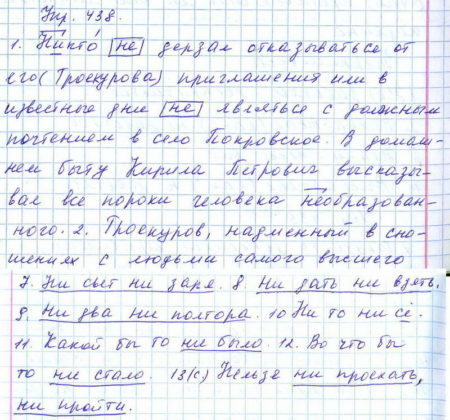 Упр. 438.
1. Никто́ не дерзал отказываться от
его (Троекурова) приглашения или в
известные дни не являться с должным
почтением в село Покровское. В домаш-
нем быту Кирила Петрович высказы-
вал все пороки человека необразован-
ного. 2. Троекуров, надменный в сно-
шениях с людьми самого высшего
7. Ни свет ни заря. 8 Ни дать ни взять.
9. Ни два ни полтора. 10 Ни то ни сё.
11. Какой бы то ни было. 12. Во что бы
то ни стало. 13(с) Нельзя ни проехать,
ни пройти.